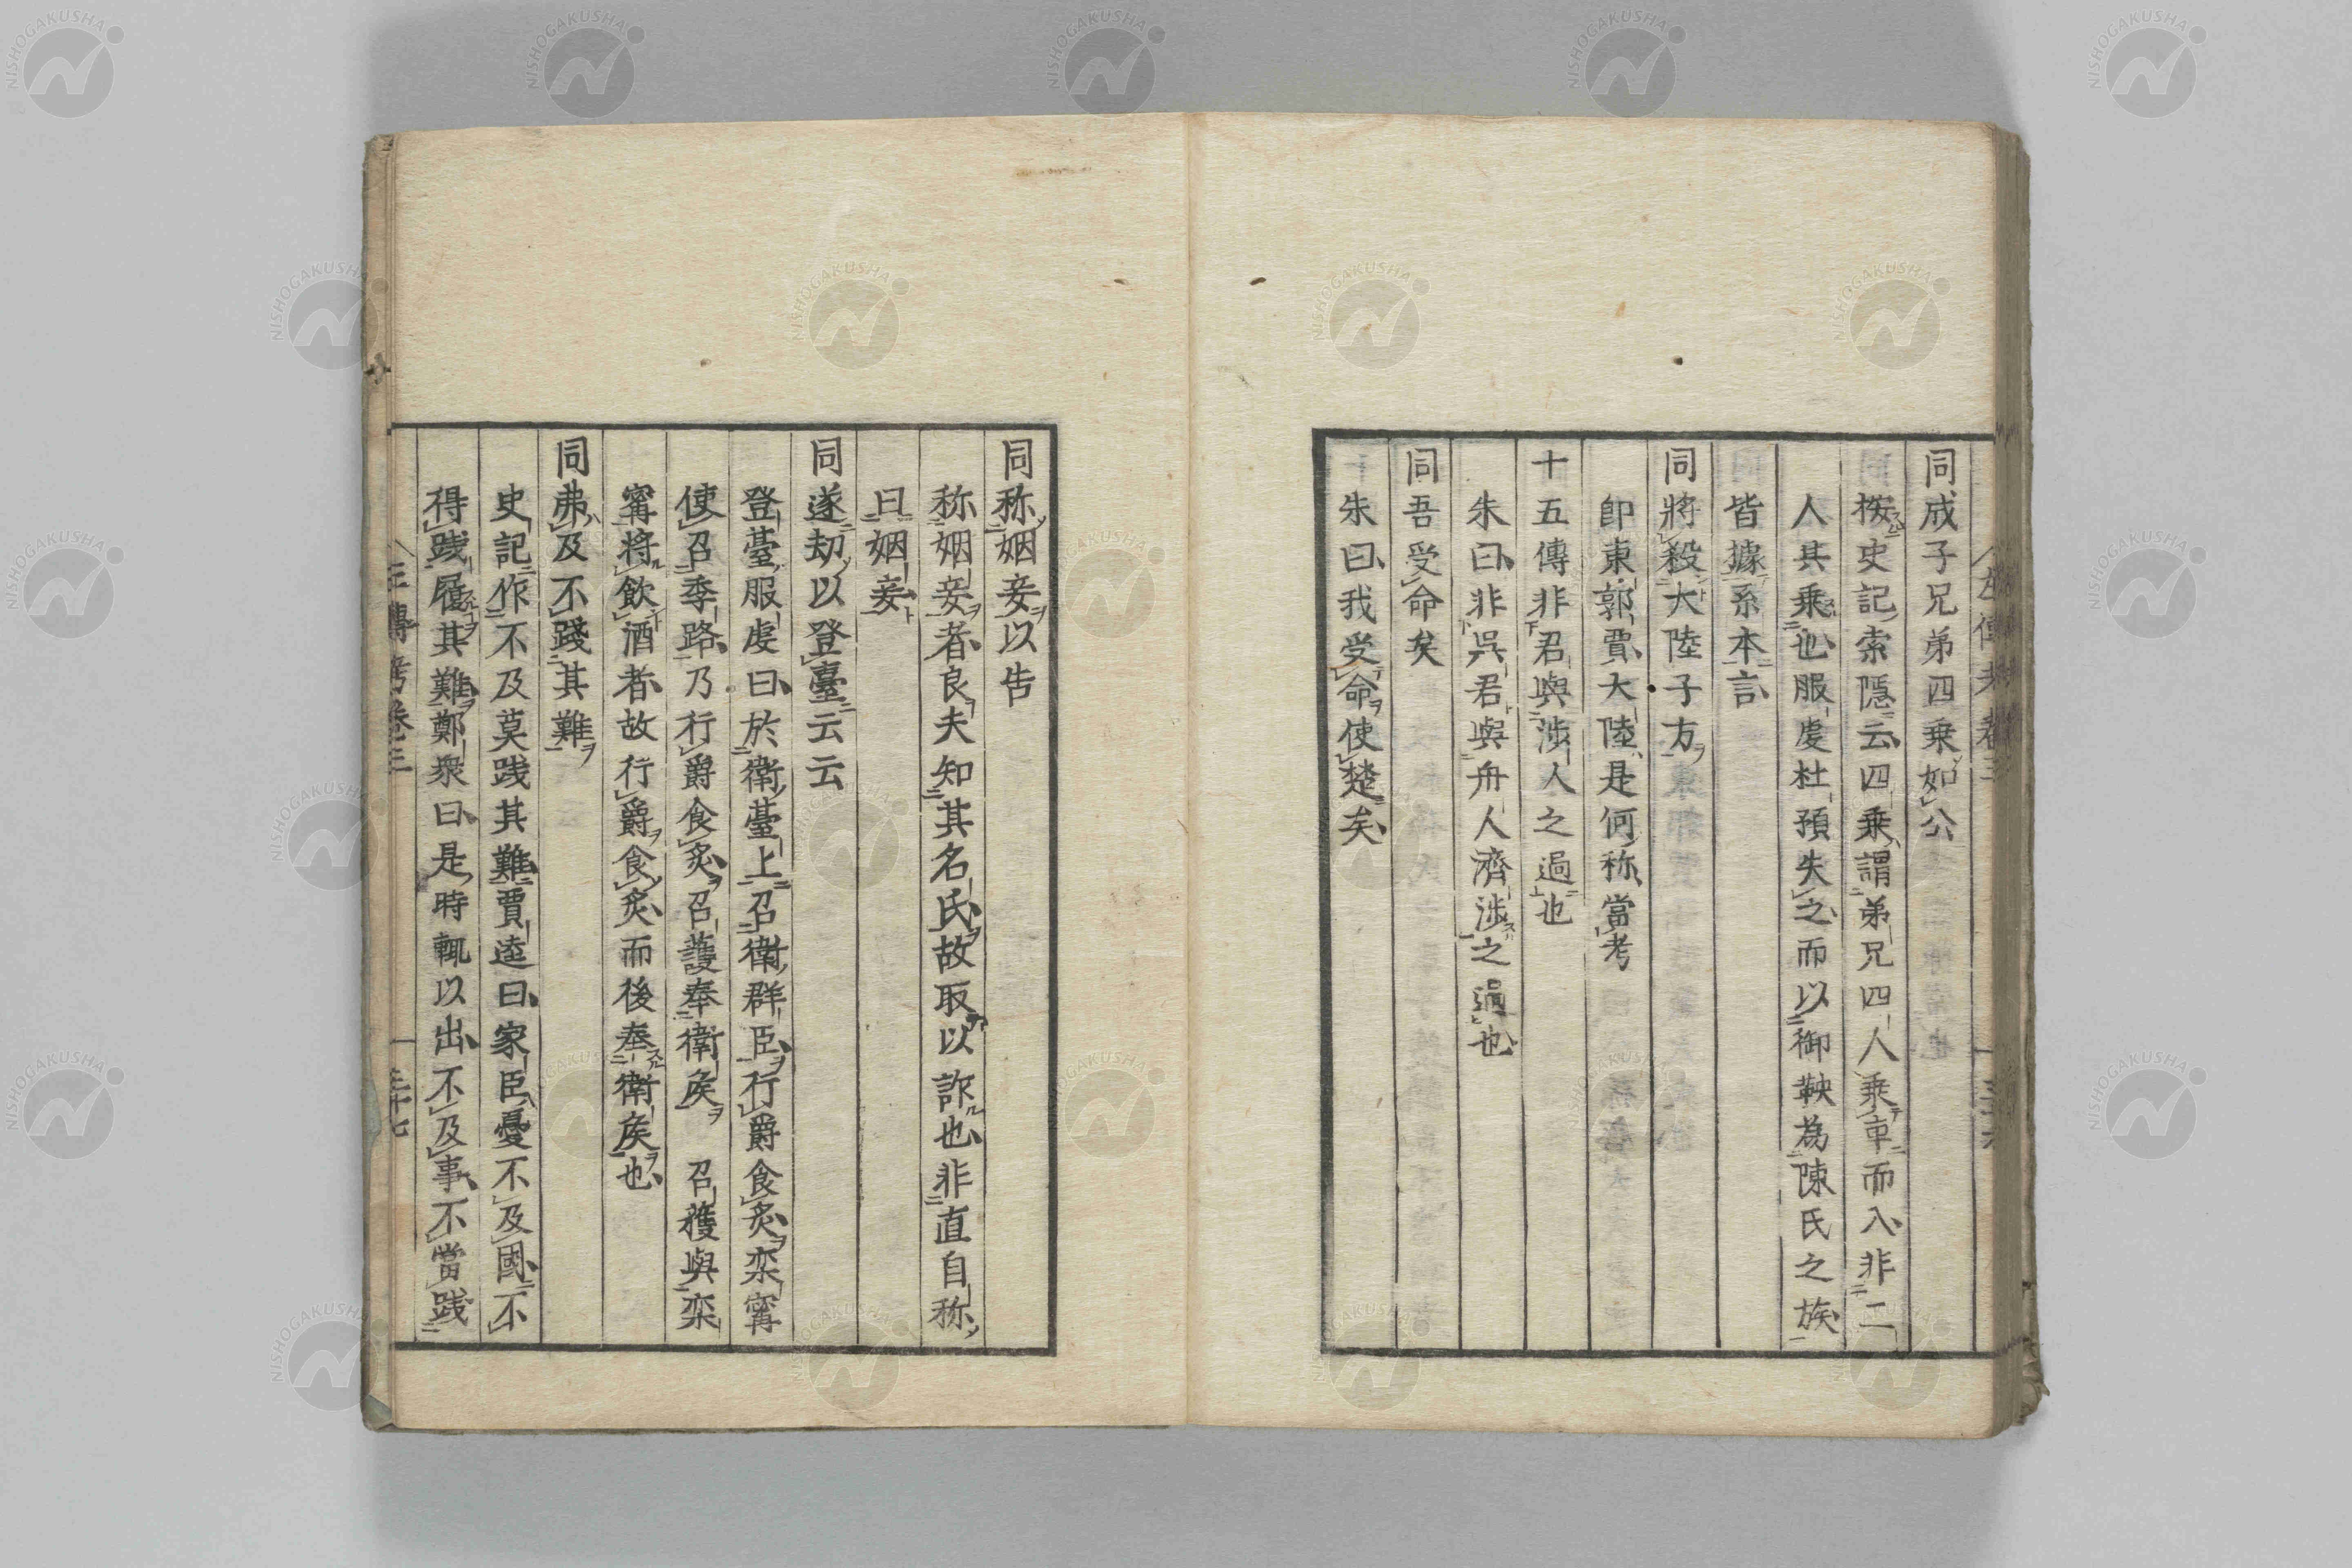 同成子兄弟四乘如公
按史記索隱云四乘謂弟兄四人乘車而入非二
人其乘也服虔杜預失之而以御鞅為陳氏之族
皆據系本言
同將殺大陸子方
即東郭賈大陸是何称當考
十五傳非君與涉人之過也
朱曰非吳君與舟人濟涉之過也
同吾受命矣
朱曰我受命使楚矣
同称姻妾以告
称姻妾者良夫知其名氏故取以訴也非直自称
曰姻妾
同遂刧以登臺云云
登臺服虔曰於衛臺上召衛群臣行爵食炙栾寗
使召季路乃行爵食炙召護奉衛矦 召獲與栾
寗將飲酒者故行爵食炙而後奉衛矦也
同弗及不踐其難
史記作不及莫践其難賈逵曰家臣憂不及國不
得践履其難鄭衆曰是時輒以出不及事不當践
左傳考卷三
NISHOGAKUSHA